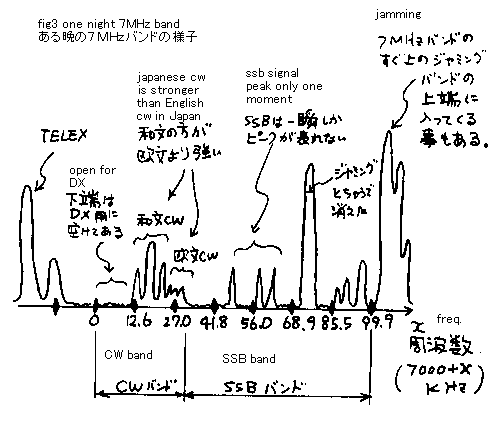 fig3 one night 7MHz band
ある晩の7MHzバンドの様子
jamming
7MHzバンドの
すぐ上のジャミング
バンドの
上端に
入ってくる
事もある。
japanese cw
is stronger
than English
cw in Japan
和文の方が
欧文より強い
ssb signal
peak only one
moment
SSBは一瞬しか
ピークが表れない
TELEX
open for
DX
下端は
DX用に
空けてある
和文CW
欧文CW
ジャミング
とちゅうで
消えた
0 12.6 27.0 41.8 56.0 68.9 85.5 99.9
x freq.
周波数
(7000+X
KHz)
CW band
SSB band
CWバンド
SSBバンド